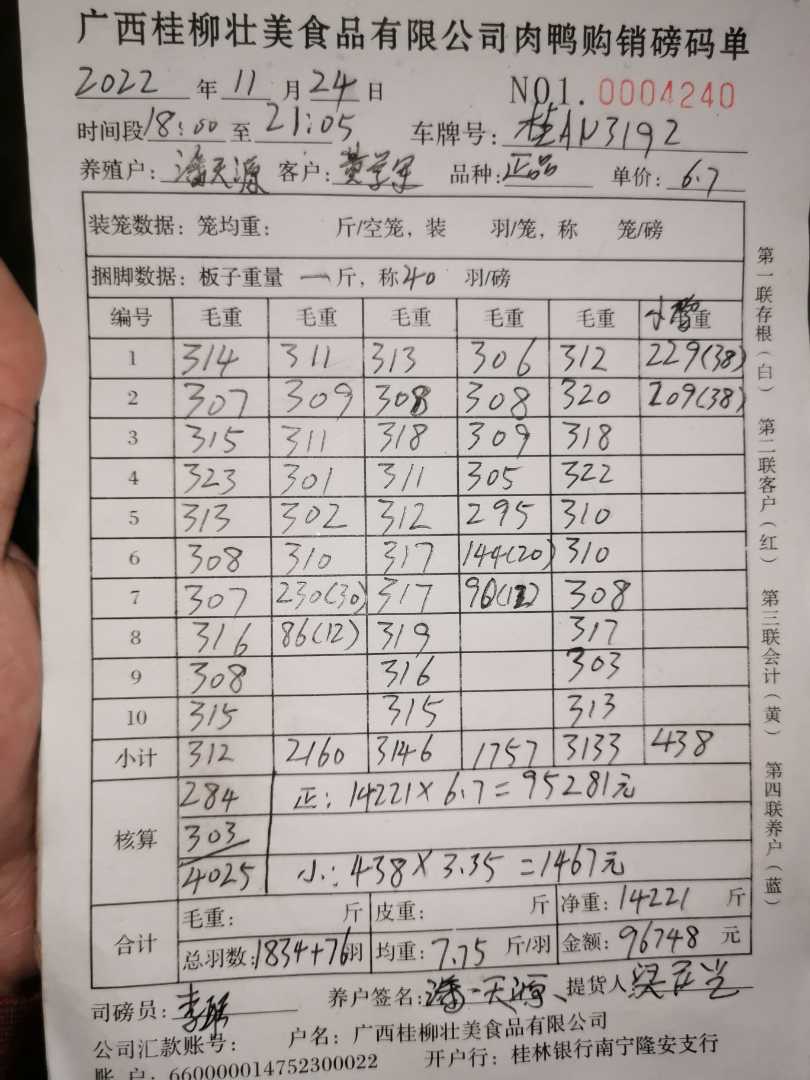 广西桂柳壮美食品有限公司肉鸭购销磅码单
2022 年 11 月 24 日 NO1. 0004240
时间段 18:00 至 21:05 车牌号: 桂AN3192
养殖户: 潘天源 客户: 品种: 正品 单价: 6.7
装笼数据: 笼均重: 斤/空笼, 装 羽/笼, 称 笼/磅
捆脚数据: 板子重量 一 斤, 称 40 羽/磅
编号 毛重 毛重 毛重 毛重 毛重 重
1 314 311 313 306 312 229(38)
2 307 309 308 308 320 209(38)
3 315 311 318 309 318
4 323 301 311 305 322
5 313 302 312 295 310
6 308 310 317 144(20) 310
7 307 230(30) 317 90(12) 308
8 316 86(12) 319 317
9 308 316 303
10 315 315 313
小计 312 2160 3146 1757 3133 438
核算 284 正: 14221×6.7=95281元
303
4025 小: 438×3.35=1467元
合计 毛重: 斤 皮重: 斤 净重: 14221 斤
总羽数: 1834+76羽 均重: 7.75 斤/羽 金额: 96748 元
司磅员: 养户签名: 潘天源 提货人
公司汇款账号: 户名: 广西桂柳壮美食品有限公司
账 户: 660000014752300022 开户行: 桂林银行南宁隆安支行
第一联存根(白) 第二联客户(红) 第三联会计(黄) 第四联养户(蓝)